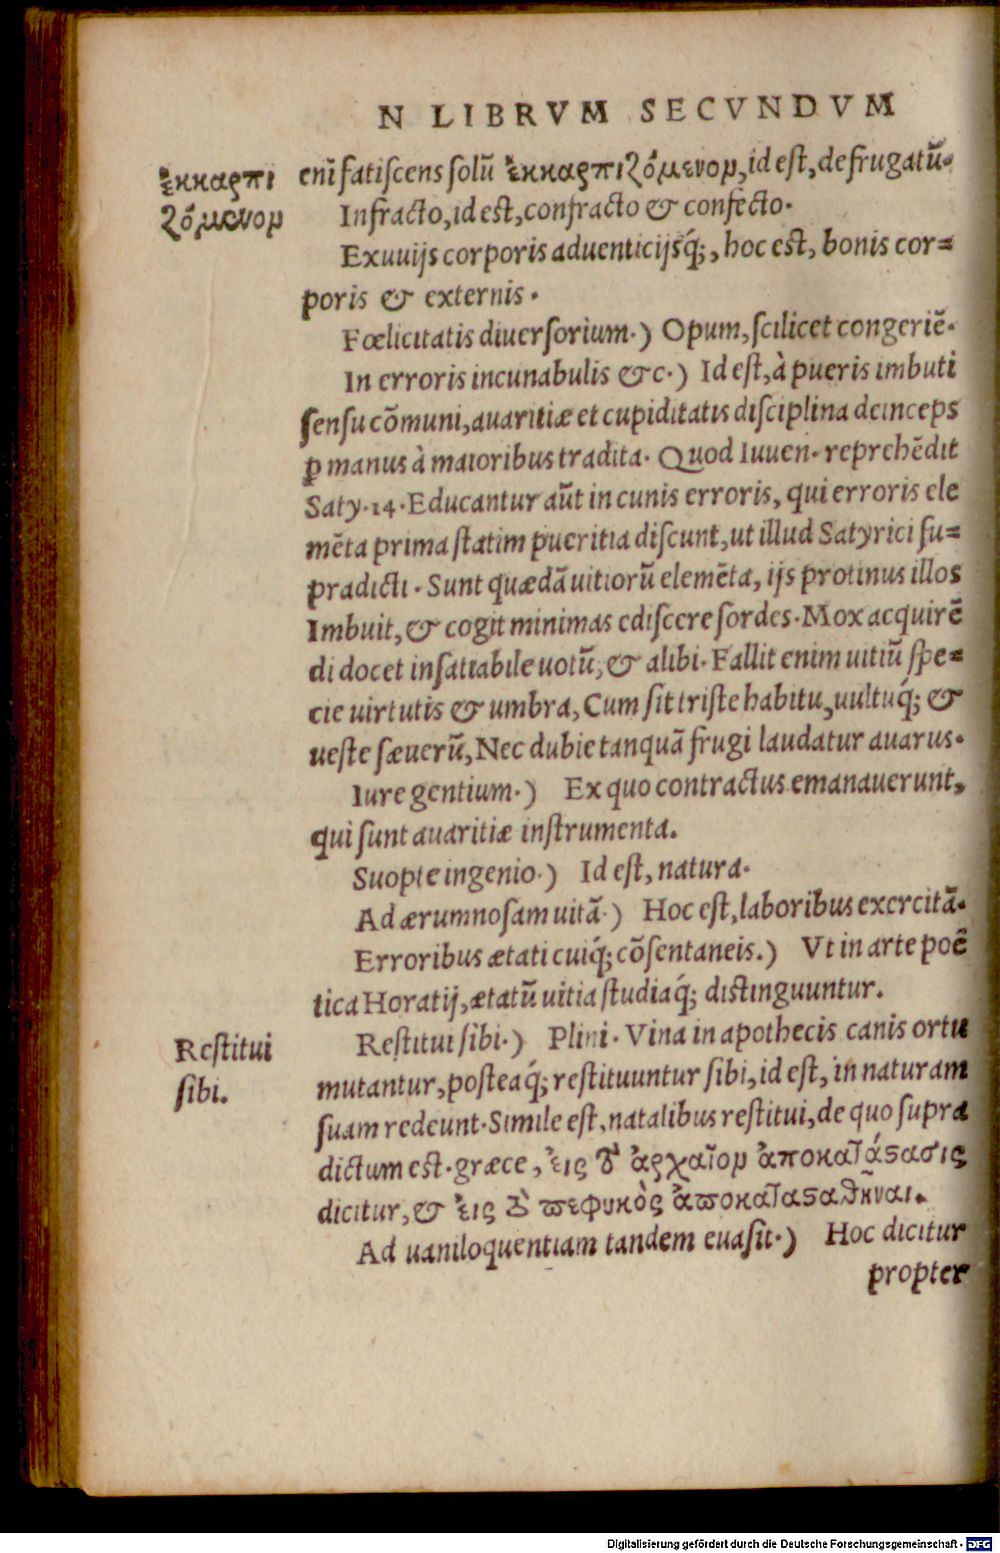 N LIBRVM SECVNDVM
ἐκκαρπι
ζόμενον
enī fatiſcens ſolū ἐκκαρπιζόμενον, id eſt, defrugatū.
Infracto, id eſt, confracto & confecto.
Exuuijs corporis aduenticijsq́;, hoc eſt, bonis cor=
poris & externis.
Fœlicitatis diuerſorium.) Opum, ſcilicet congeriē.
In erroris incunabulis &c.) Id eſt, à pueris imbuti
ſenſu cōmuni, auaritiæ et cupiditatis diſciplina deinceps
ꝑ manus à maioribus tradita. Quod Iuuen. reprehēdit
Saty. 14. Educantur aūt in cunis erroris, qui erroris ele
mēta prima ſtatim pueritia diſcunt, ut illud Satyrici ſu=
pradicti. Sunt quædā uitiorū elemēta, ijs protinus illos
Imbuit, & cogit minimas ediſcere ſordes. Mox acquirē
di docet inſatiabile uotū, & alibi. Fallit enim uitiū ſpe=
cie uirtutis & umbra, Cum ſit triſte habitu, uultuq́; &
ueſte ſæuerū, Nec dubie tanquā frugi laudatur auarus.
Iure gentium.) Ex quo contractus emanauerunt,
qui ſunt auaritiæ inſtrumenta.
Suopte ingenio.) Id eſt, natura.
Ad ærumnoſam uitā.) Hoc eſt, laboribus exercitā.
Erroribus ætati cuiq́; cōſentaneis.) Vt in arte poē
tica Horatij, ætatū uitia ſtudiaq́; diſtinguuntur.
Reſtitui
ſibi.
Reſtitui ſibi.) Plini. Vina in apothecis canis ortu
mutantur, poſteaq́; reſtituuntur ſibi, id eſt, in naturam
ſuam redeunt. Simile eſt, natalibus reſtitui, de quo ſupra
dictum est. græce, ἐις τὸ ἀρχαῖον ἀποκατάϛασις
dicitur, & ἐις τὸ πεφυκὸς ἀποκαταϛαθῆναι.
Ad uaniloquentiam tandem euaſit.) Hoc dicitur
propter
Digitalisierung gefördert durch die Deutsche Forschungsgemeinschaft - DFG